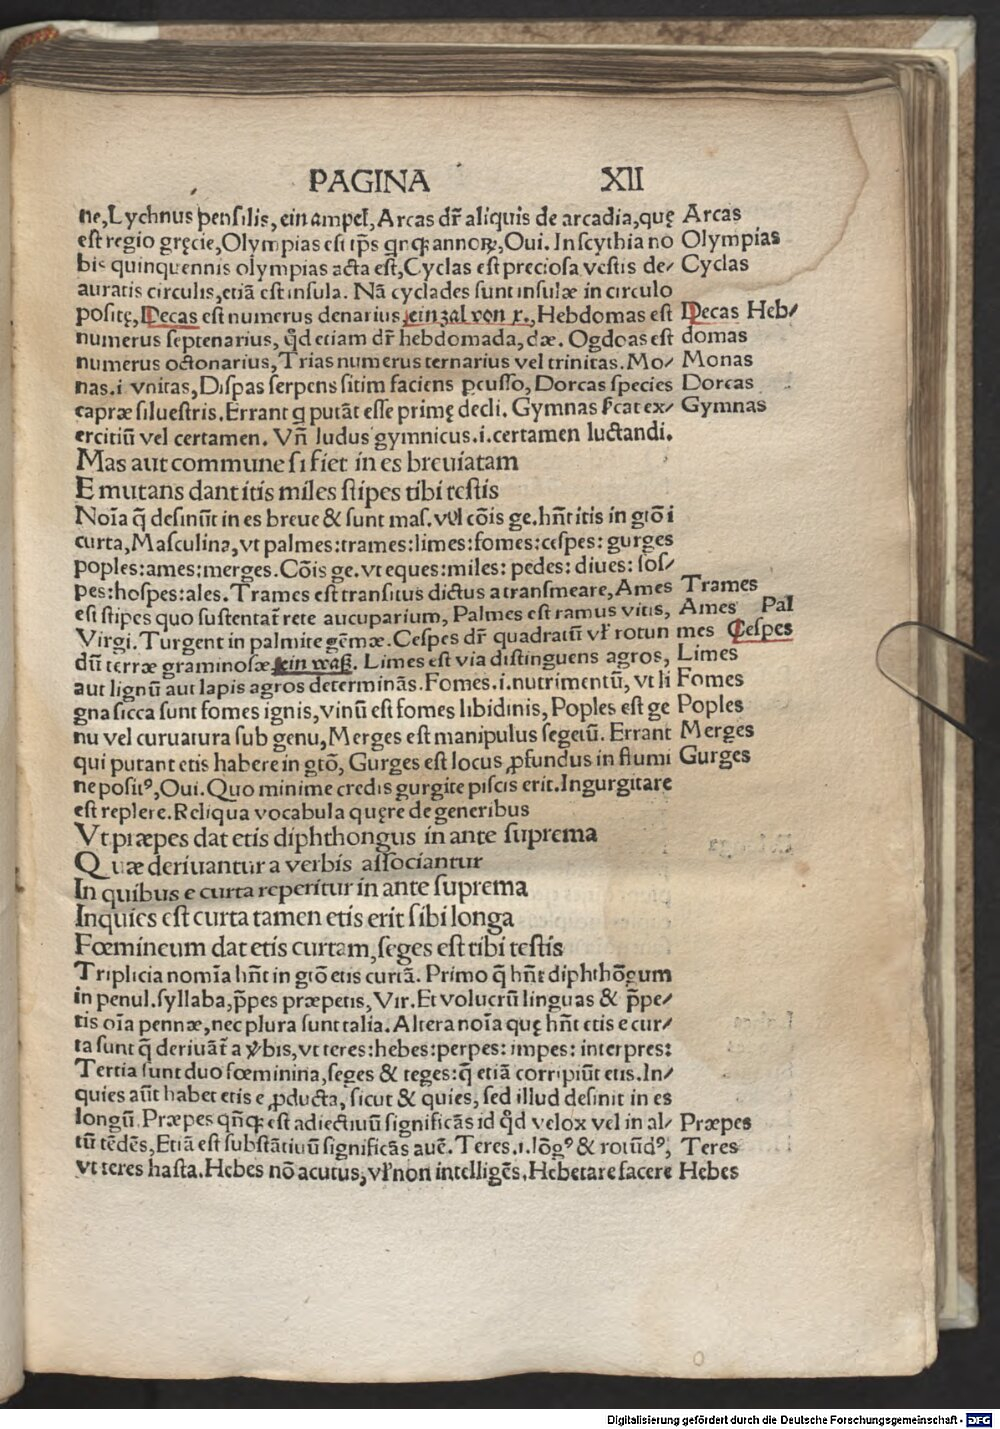 PAGINA XII
ne,Lychnus pensilis,ein ampel,Arcas dr̄ aliquis de arcadia,quę Arcas
est regio gręcie,Olympias est tp̄s qnqꝫ annoꝝ,Oui. In scythia no Olympias
bis quinquennis olympias acta est,Cyclas est preciosa vestis de⸗ Cyclas
auratis circulis,etiā est insula. Nā cyclades sunt insulæ in circulo
positę,Decas est numerus denarius,ein zal von x.,Hebdomas est Decas Heb⸗
numerus septenarius, qd̄ etiam dr̄ hebdomada,dæ. Ogdoas est domas
numerus octonarius,Trias numerus ternarius vel trinitas. Mo⸗ Monas
nas.i vnitas,Dispas serpens sitim faciens ꝑcusso,Dorcas species Dorcas
capræ siluestris.Errant q putāt esse primę decli. Gymnas s̄cat ex⸗ Gymnas
ercitiū vel certamen. Vn̄ ludus gymnicus.i.certamen luctandi.
Mas aut commune si fiet in es breuiatam
E mutans dant itis miles stipes tibi testis
Noīa q̄ desinūt in es breue & sunt mas.vl̓ cōis ge.hn̄t itis in gtō i
curta,Masculina,vt palmes:trames:limes:fomes:cespes: gurges
poples:ames:merges.Cōis ge.vt eques:miles: pedes: diues: sos⸗
pes:hospes:ales.Trames est transitus dictus a transmeare,Ames Trames
est stipes quo sustentat̄ rete aucuparium, Palmes est ramus vitis, Ames Pal
Virgi.Turgent in palmite gēmæ.Cespes dr̄ quadratū vl̓ rotun mes Cespes
dū terræ graminosæ ein waß. Limes est via distinguens agros, Limes
aut lignū aut lapis agros determinās.Fomes.i.nutrimentū, vt li Fomes
gna sicca sunt fomes ignis,vinū est fomes libidinis,Poples est ge Poples
nu vel curuatura sub genu,Merges est manipulus segetū. Errant Merges
qui putant etis habere in gtō, Gurges est locus ꝓfundus in flumi Gurges
ne posit⁹,Oui.Quo minime credis gurgite piscis erit.Ingurgitare
est replere.Reliqua vocabula quęre de generibus
Vt præpes dat etis diphthongus in ante suprema
Quæ deriuantur a verbis associantur
In quibus e curta reperitur in ante suprema
Inquies est curta tamen etis erit sibi longa
Fœmineum dat etis curtam,seges est tibi testis
Triplicia nomīa hn̄t in gtō etis curtā. Primo q̄ hn̄t diphthōgum
in penul.syllaba,p̄pes præpetis,Vir.Et volucrū linguas & p̄pe⸗
tis oīa pennæ,nec plura sunt talia.Altera noīa quę hn̄t etis e cur⸗
ta sunt q̄ deriuāt̄ a ꝟbis,vt teres:hebes:perpes: impes: interpres:
Tertia sunt duo fœminina,seges & teges:q̄ etiā corripiūt etis.In⸗
quies aūt habet etis e ꝓducta, sicut & quies, sed illud desinit in es
longū.Præpes qn̄qꝫ est adiectiuū significās id qd̄ velox vel in al⸗ Præpes
tū tēdēs,Etiā est substātiuū significās auē.Teres.i.lōg⁹ & rotūd⁹, Teres
vt teres hasta.Hebes nō acutus,vl̓ non intelligēs.Hebetare facere Hebes
Digitalisierung gefördert durch die Deutsche Forschungsgemeinschaft - DFG